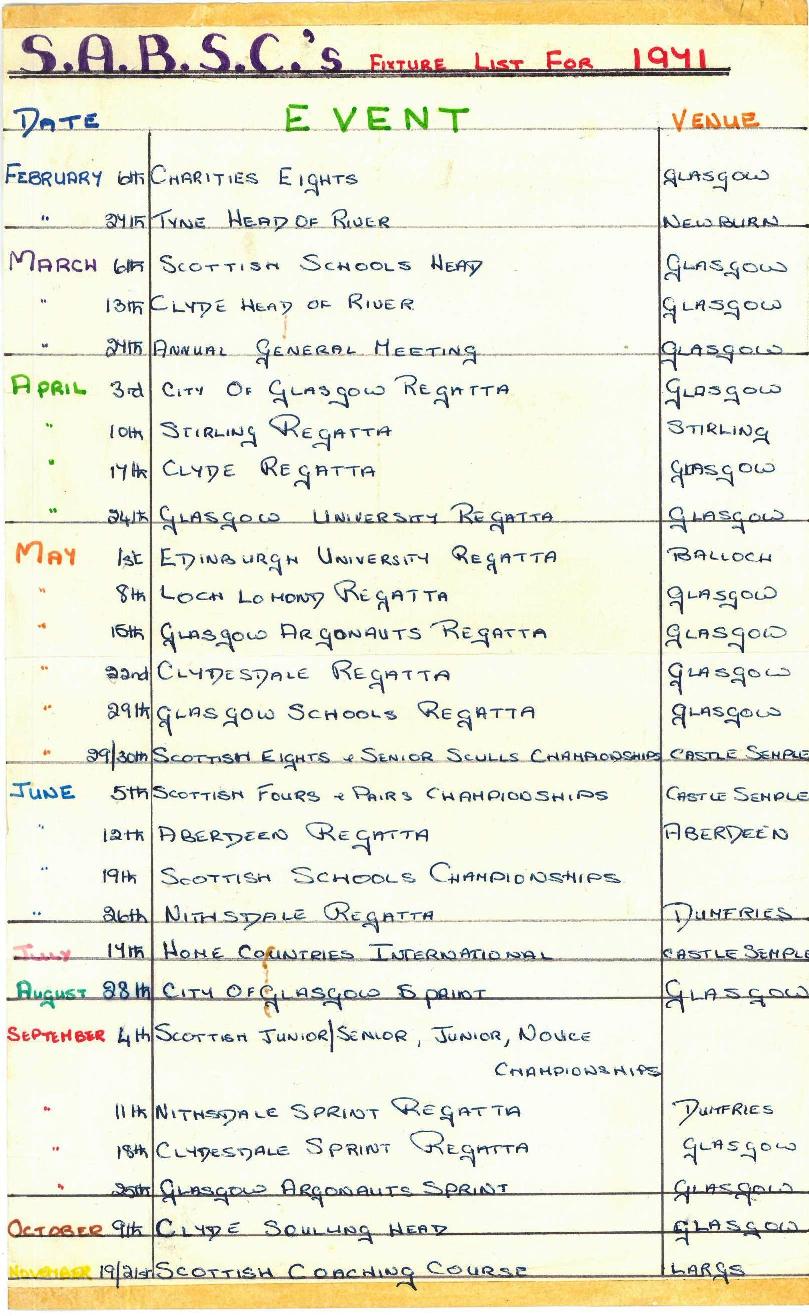 S.A.B.S.C.'s FIXTURE LIST FOR 1971
DATE EVENT VENUE
FEBRUARY 6th CHARITIES EIGHTS GLASGOW
" 27th TYNE HEAD OF RIVER NEWBURN
MARCH 6th SCOTTISH SCHOOLS HEAD GLASGOW
" 13th CLYDE HEAD OF RIVER GLASGOW
" 27th ANNUAL GENERAL MEETING GLASGOW
APRIL 3rd CITY OF GLASGOW REGATTA GLASGOW
" 10th STIRLING REGATTA STIRLING
" 17th CLYDE REGATTA GLASGOW
" 24th GLASGOW UNIVERSITY REGATTA GLASGOW
MAY 1st EDINBURGH UNIVERSITY REGATTA BALLOCH
" 8th LOCH LOMOND REGATTA GLASGOW
" 15th GLASGOW ARGONAUTS REGATTA GLASGOW
" 22nd CLYDESDALE REGATTA GLASGOW
" 29th GLASGOW SCHOOLS REGATTA GLASGOW
" 29/30th SCOTTISH EIGHTS & SENIOR SCULLS CHAMPIONSHIPS CASTLE SEMPLE
JUNE 5th SCOTTISH FOURS & PAIRS CHAMPIONSHIPS CASTLE SEMPLE
" 12th ABERDEEN REGATTA ABERDEEN
" 19th SCOTTISH SCHOOLS CHAMPIONSHIPS
" 26th NITHSDALE REGATTA DUMFRIES
JULY 17th HOME COUNTRIES INTERNATIONAL CASTLE SEMPLE
AUGUST 28th CITY OF GLASGOW SPRINT GLASGOW
SEPTEMBER 4th SCOTTISH JUNIOR/SENIOR, JUNIOR, NOVICE
CHAMPIONSHIPS
" 11th NITHSDALE SPRINT REGATTA DUMFRIES
" 18th CLYDESDALE SPRINT REGATTA GLASGOW
" 25th GLASGOW ARGONAUTS SPRINT GLASGOW
OCTOBER 9th CLYDE SCULLING HEAD GLASGOW
NOVEMBER 19/21st SCOTTISH COACHING COURSE LARGS